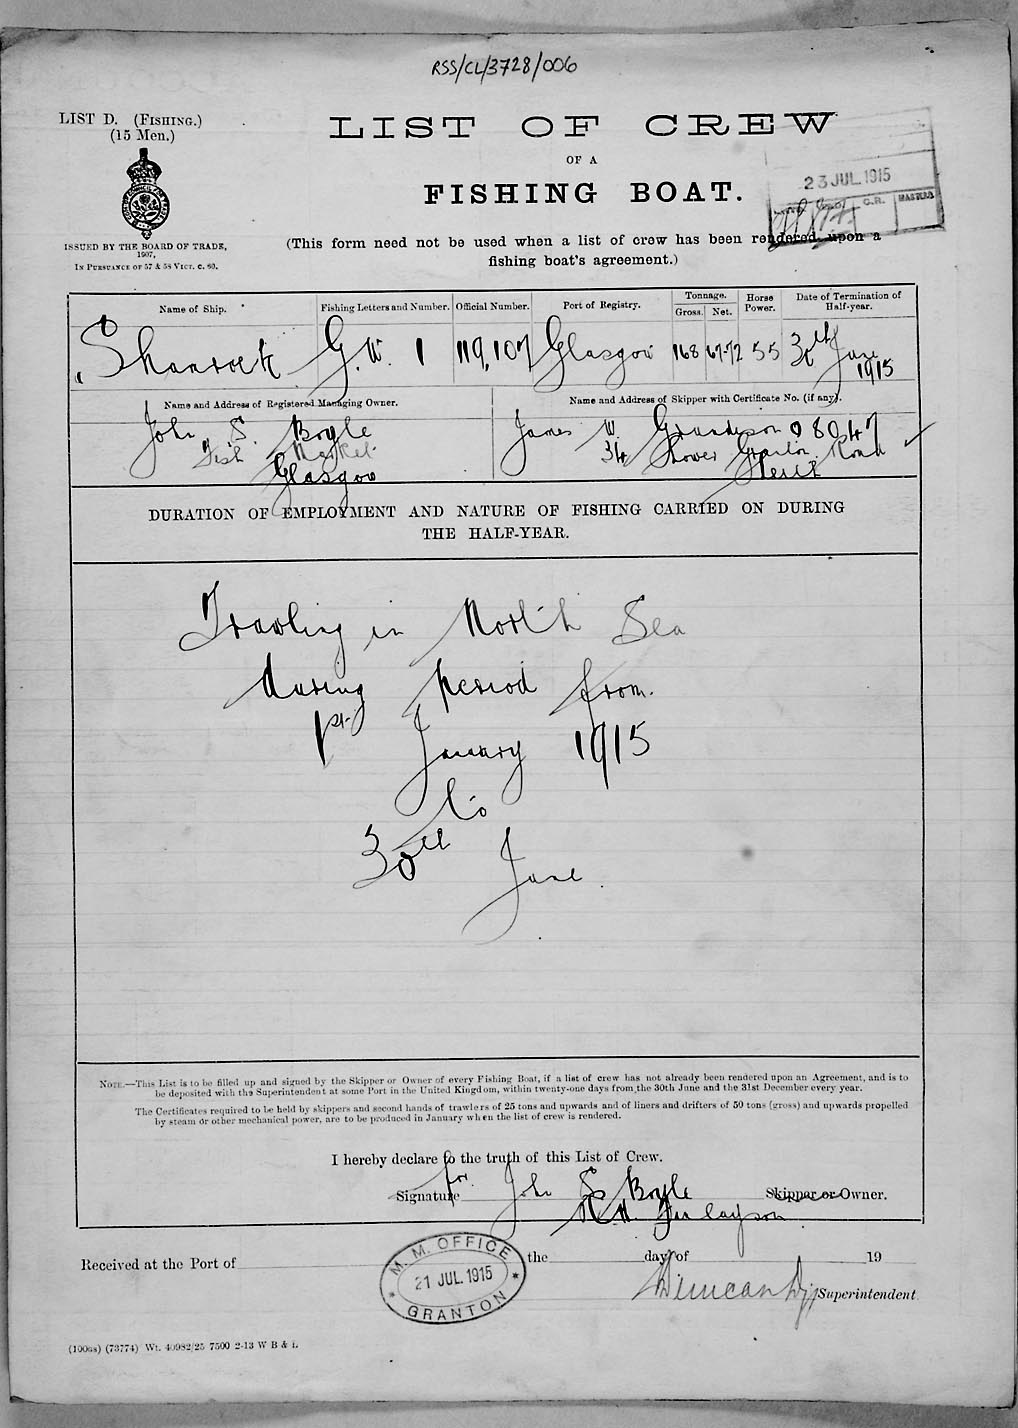 RSS/CL/3728/006
LIST D. (FISHING.)
(15 Men.)
LIST OF CREW
OF A
FISHING BOAT.
23 JUL 1915
C.R.
MASTERS
ISSUED BY THE BOARD OF TRADE,
1907,
IN PURSUANCE OF 57 & 58 VICT. C. 60.
(This form need not be used when a list of crew has been rendered upon a
fishing boat's agreement.)
Name of Ship. Fishing Letters and Number. Official Number. Port of Registry. Tonnage. Gross. Net. Horse Power. Date of Termination of Half-year.
Shamrock G.W. 1 119,107 Glasgow 168 67.72 55 30th June 1915
Name and Address of Registered Managing Owner. Name and Address of Skipper with Certificate No. (if any).
John S. Boyle James W. Grandison 98047
Fish Market 34 Lower Granton Road
Glasgow Leith
DURATION OF EMPLOYMENT AND NATURE OF FISHING CARRIED ON DURING
THE HALF-YEAR.
Trawling in North Sea
during period from
1st January 1915
to
30th June.
NOTE.—This List is to be filled up and signed by the Skipper or Owner of every Fishing Boat, if a list of crew has not already been rendered upon an Agreement, and is to
be deposited with the Superintendent at some Port in the United Kingdom, within twenty-one days from the 30th June and the 31st December every year.
The Certificates required to be held by skippers and second hands of trawlers of 25 tons and upwards and of liners and drifters of 50 tons (gross) and upwards propelled
by steam or other mechanical power, are to be produced in January when the list of crew is rendered.
I hereby declare to the truth of this List of Crew.
Signature for John S Boyle Skipper or Owner.
Finlayson
Received at the Port of the day of 19
M. M. OFFICE
21 JUL.1915
GRANTON
Duncan Superintendent
(100GS) (73774) Wt. 40982/25 7500 2-13 W B & L